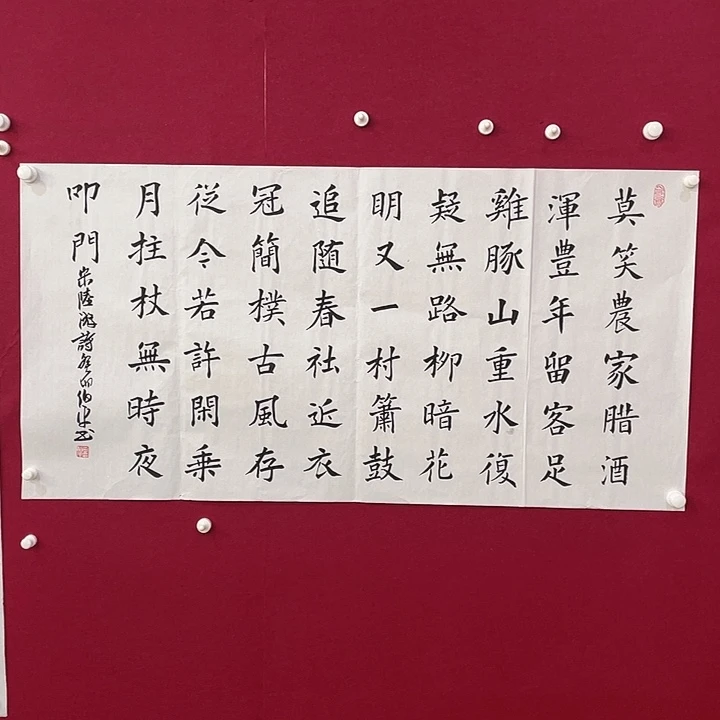 莫笑農家腊酒
渾豊年留客足
雞豚山重水復
疑無路柳暗花
明又一村簫鼓
追随春社近衣
冠簡樸古風存
従今若許閑乗
月拄杖無時夜
叩門
宋陸游詩癸卯